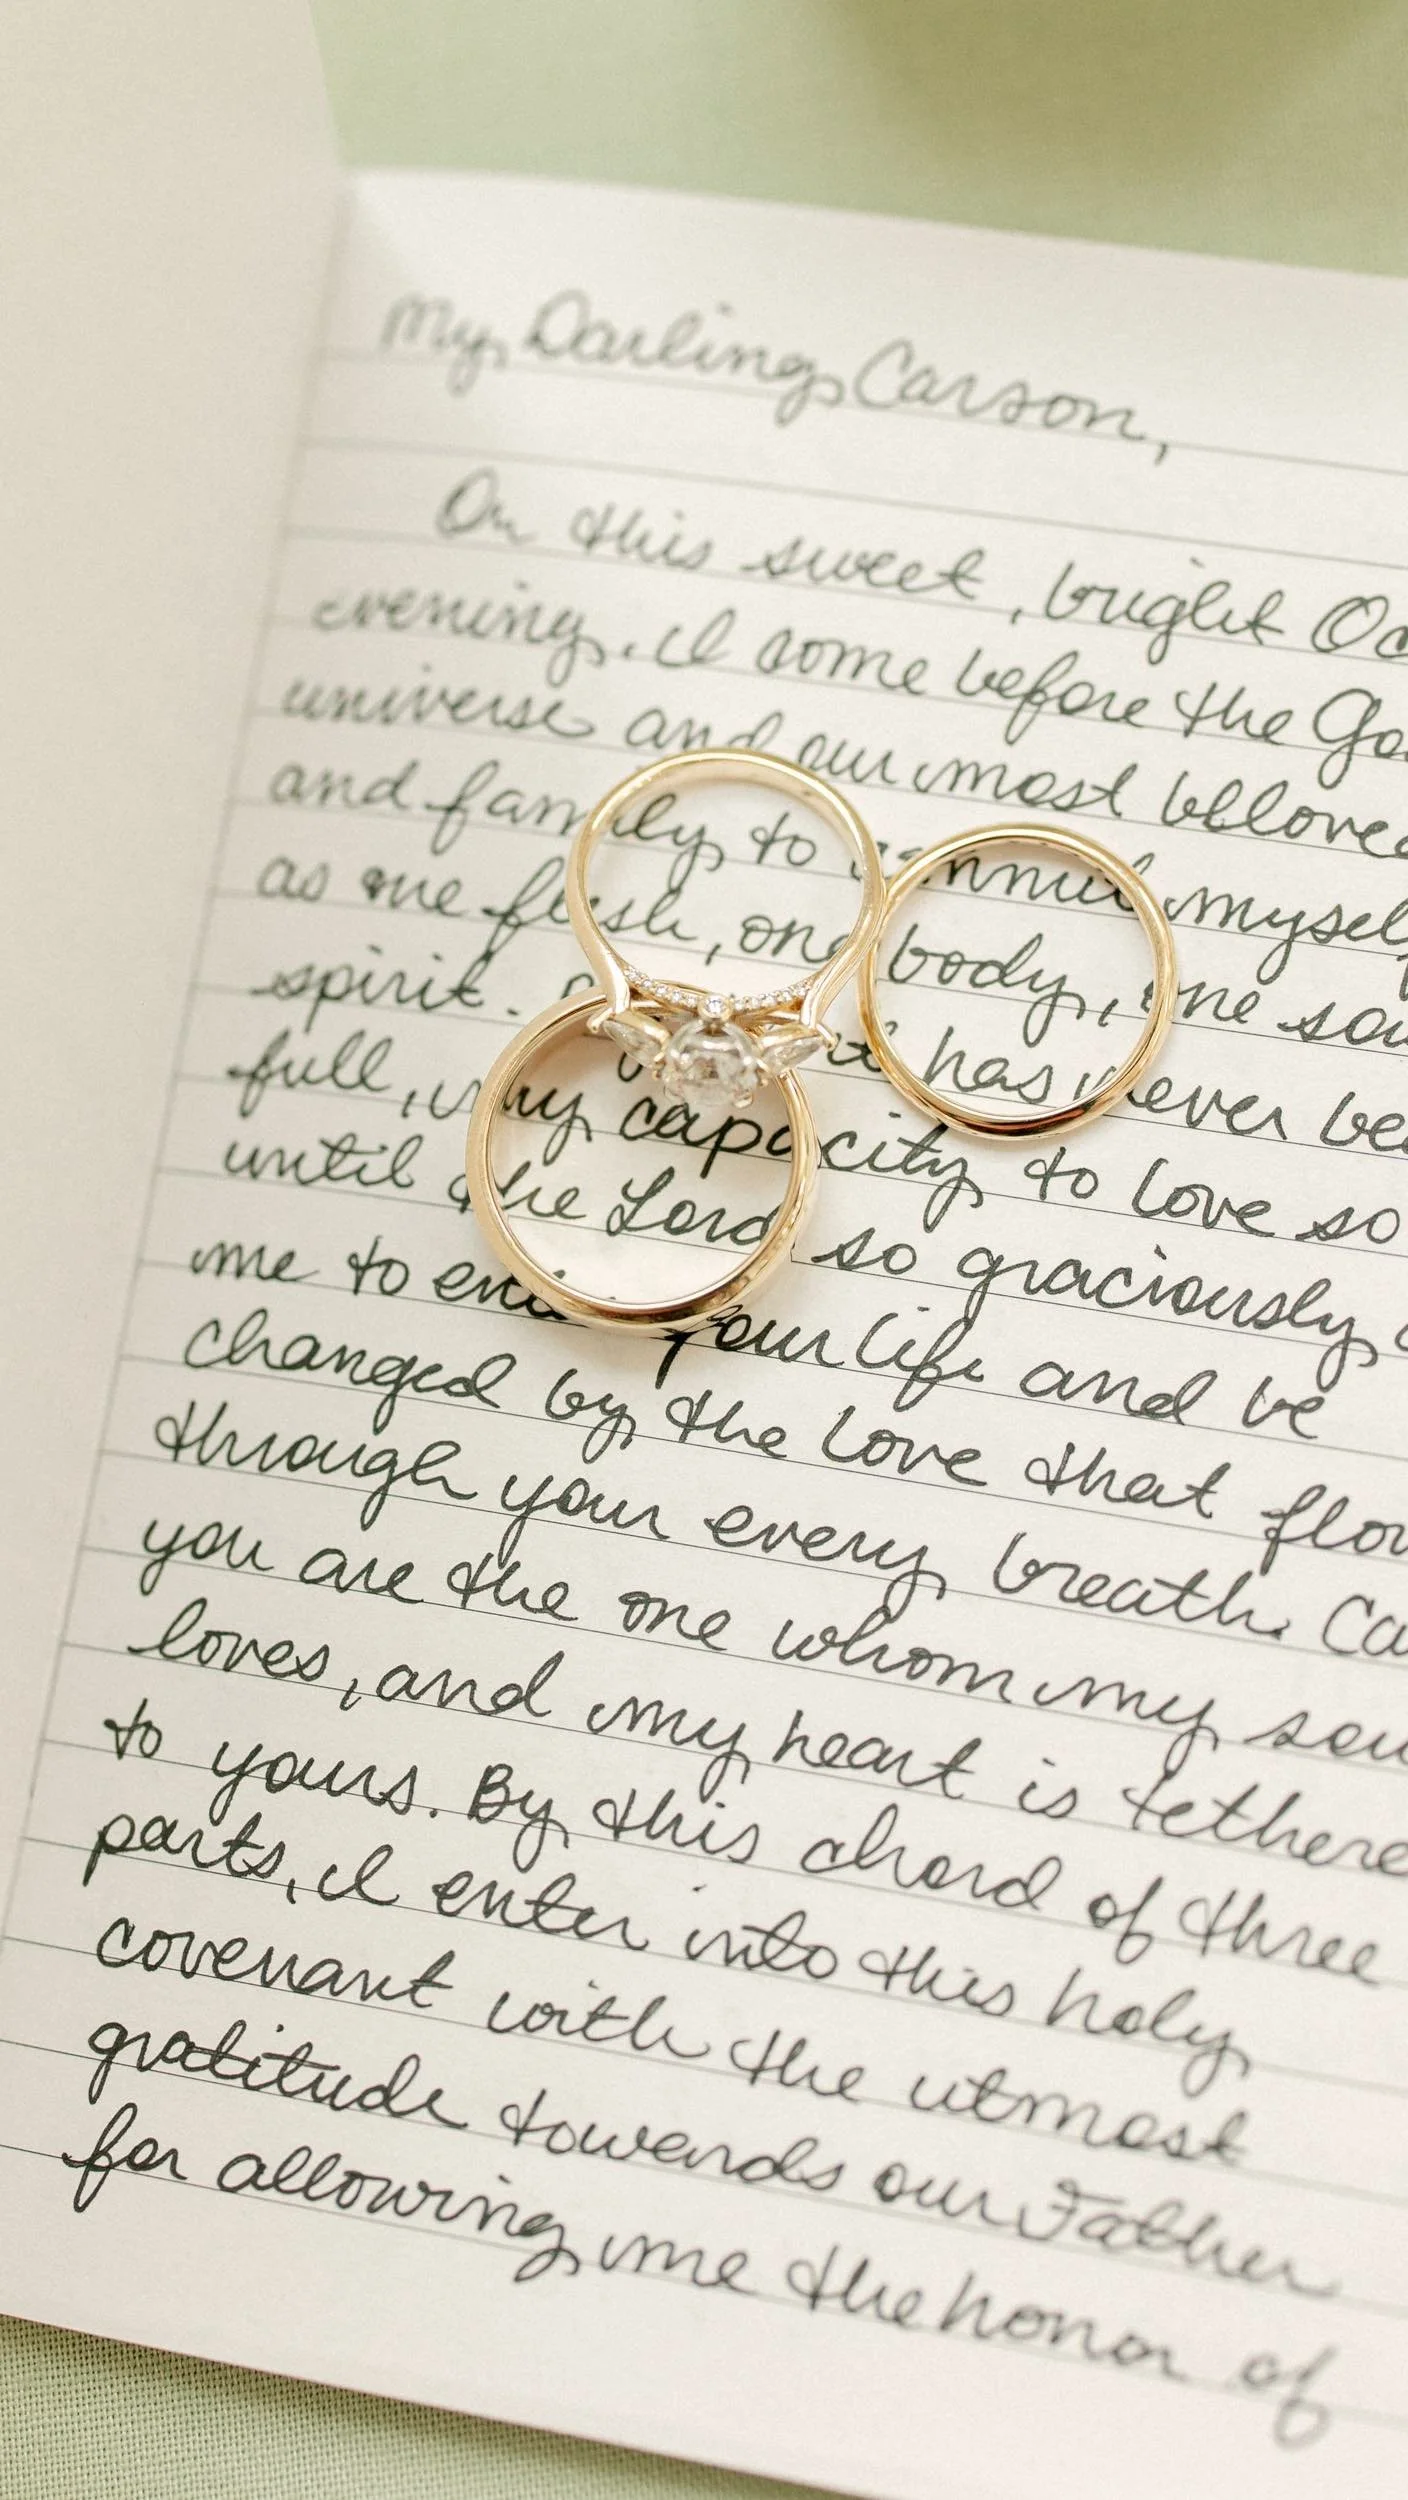 My Darling Carson,
On this sweet, bright Oc
evening, I come before the Go
universe and our most beloved
and family to commit myself
as one flesh, one body, one sou
spirit. has never be
full, my capacity to love so
until the Lord so graciously
me to your life and be
changed by the love that flow
through your every breath. Ca
you are the one whom my sou
loves, and my heart is tethere
to yours. By this chord of three
parts, I enter into this holy
covenant with the utmost
gratitude towards our Father
for allowing me the honor of